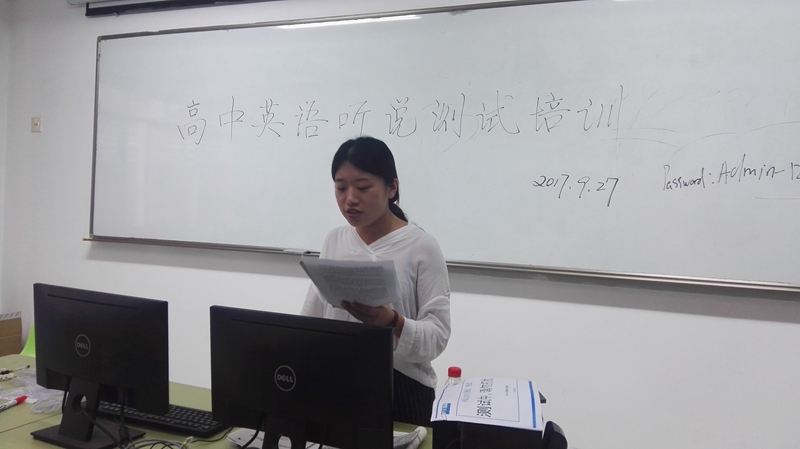 高中英语听说测试培训
2017.9.27
Password: Admin-12
DELL
DELL